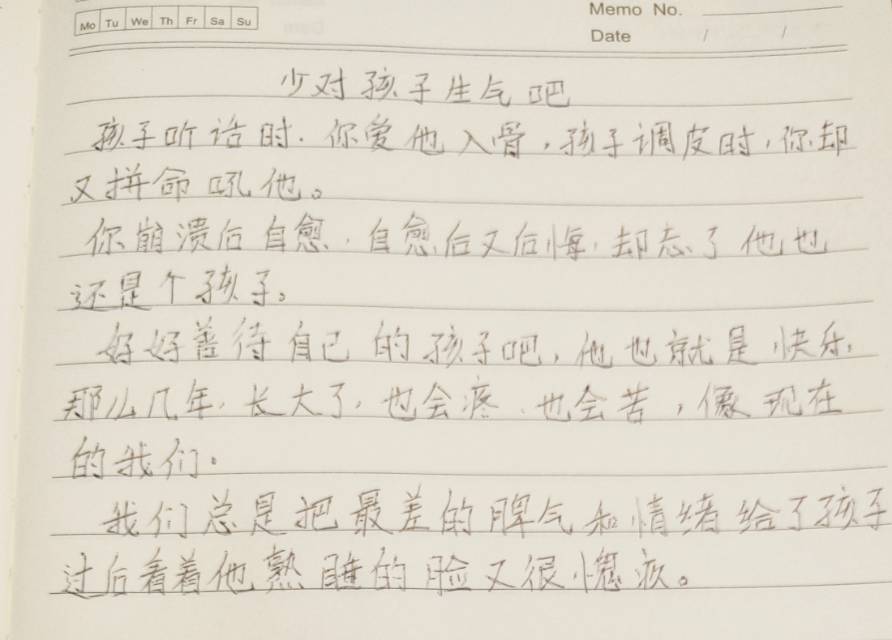 Mo Tu We Th Fr Sa Su
Memo No.
Date / /
少对孩子生气吧
孩子听话时.你爱他入骨,孩子调皮时,你却
又拼命吼他。
你崩溃后自愈.自愈后又后悔.却忘了他也
还是个孩子。
好好善待自己的孩子吧,他也就是快乐,
那么几年.长大了.也会疼.也会苦,像现在
的我们.
我们总是把最差的脾气和情绪给了孩子
过后看着他熟睡的脸又很愧疚。